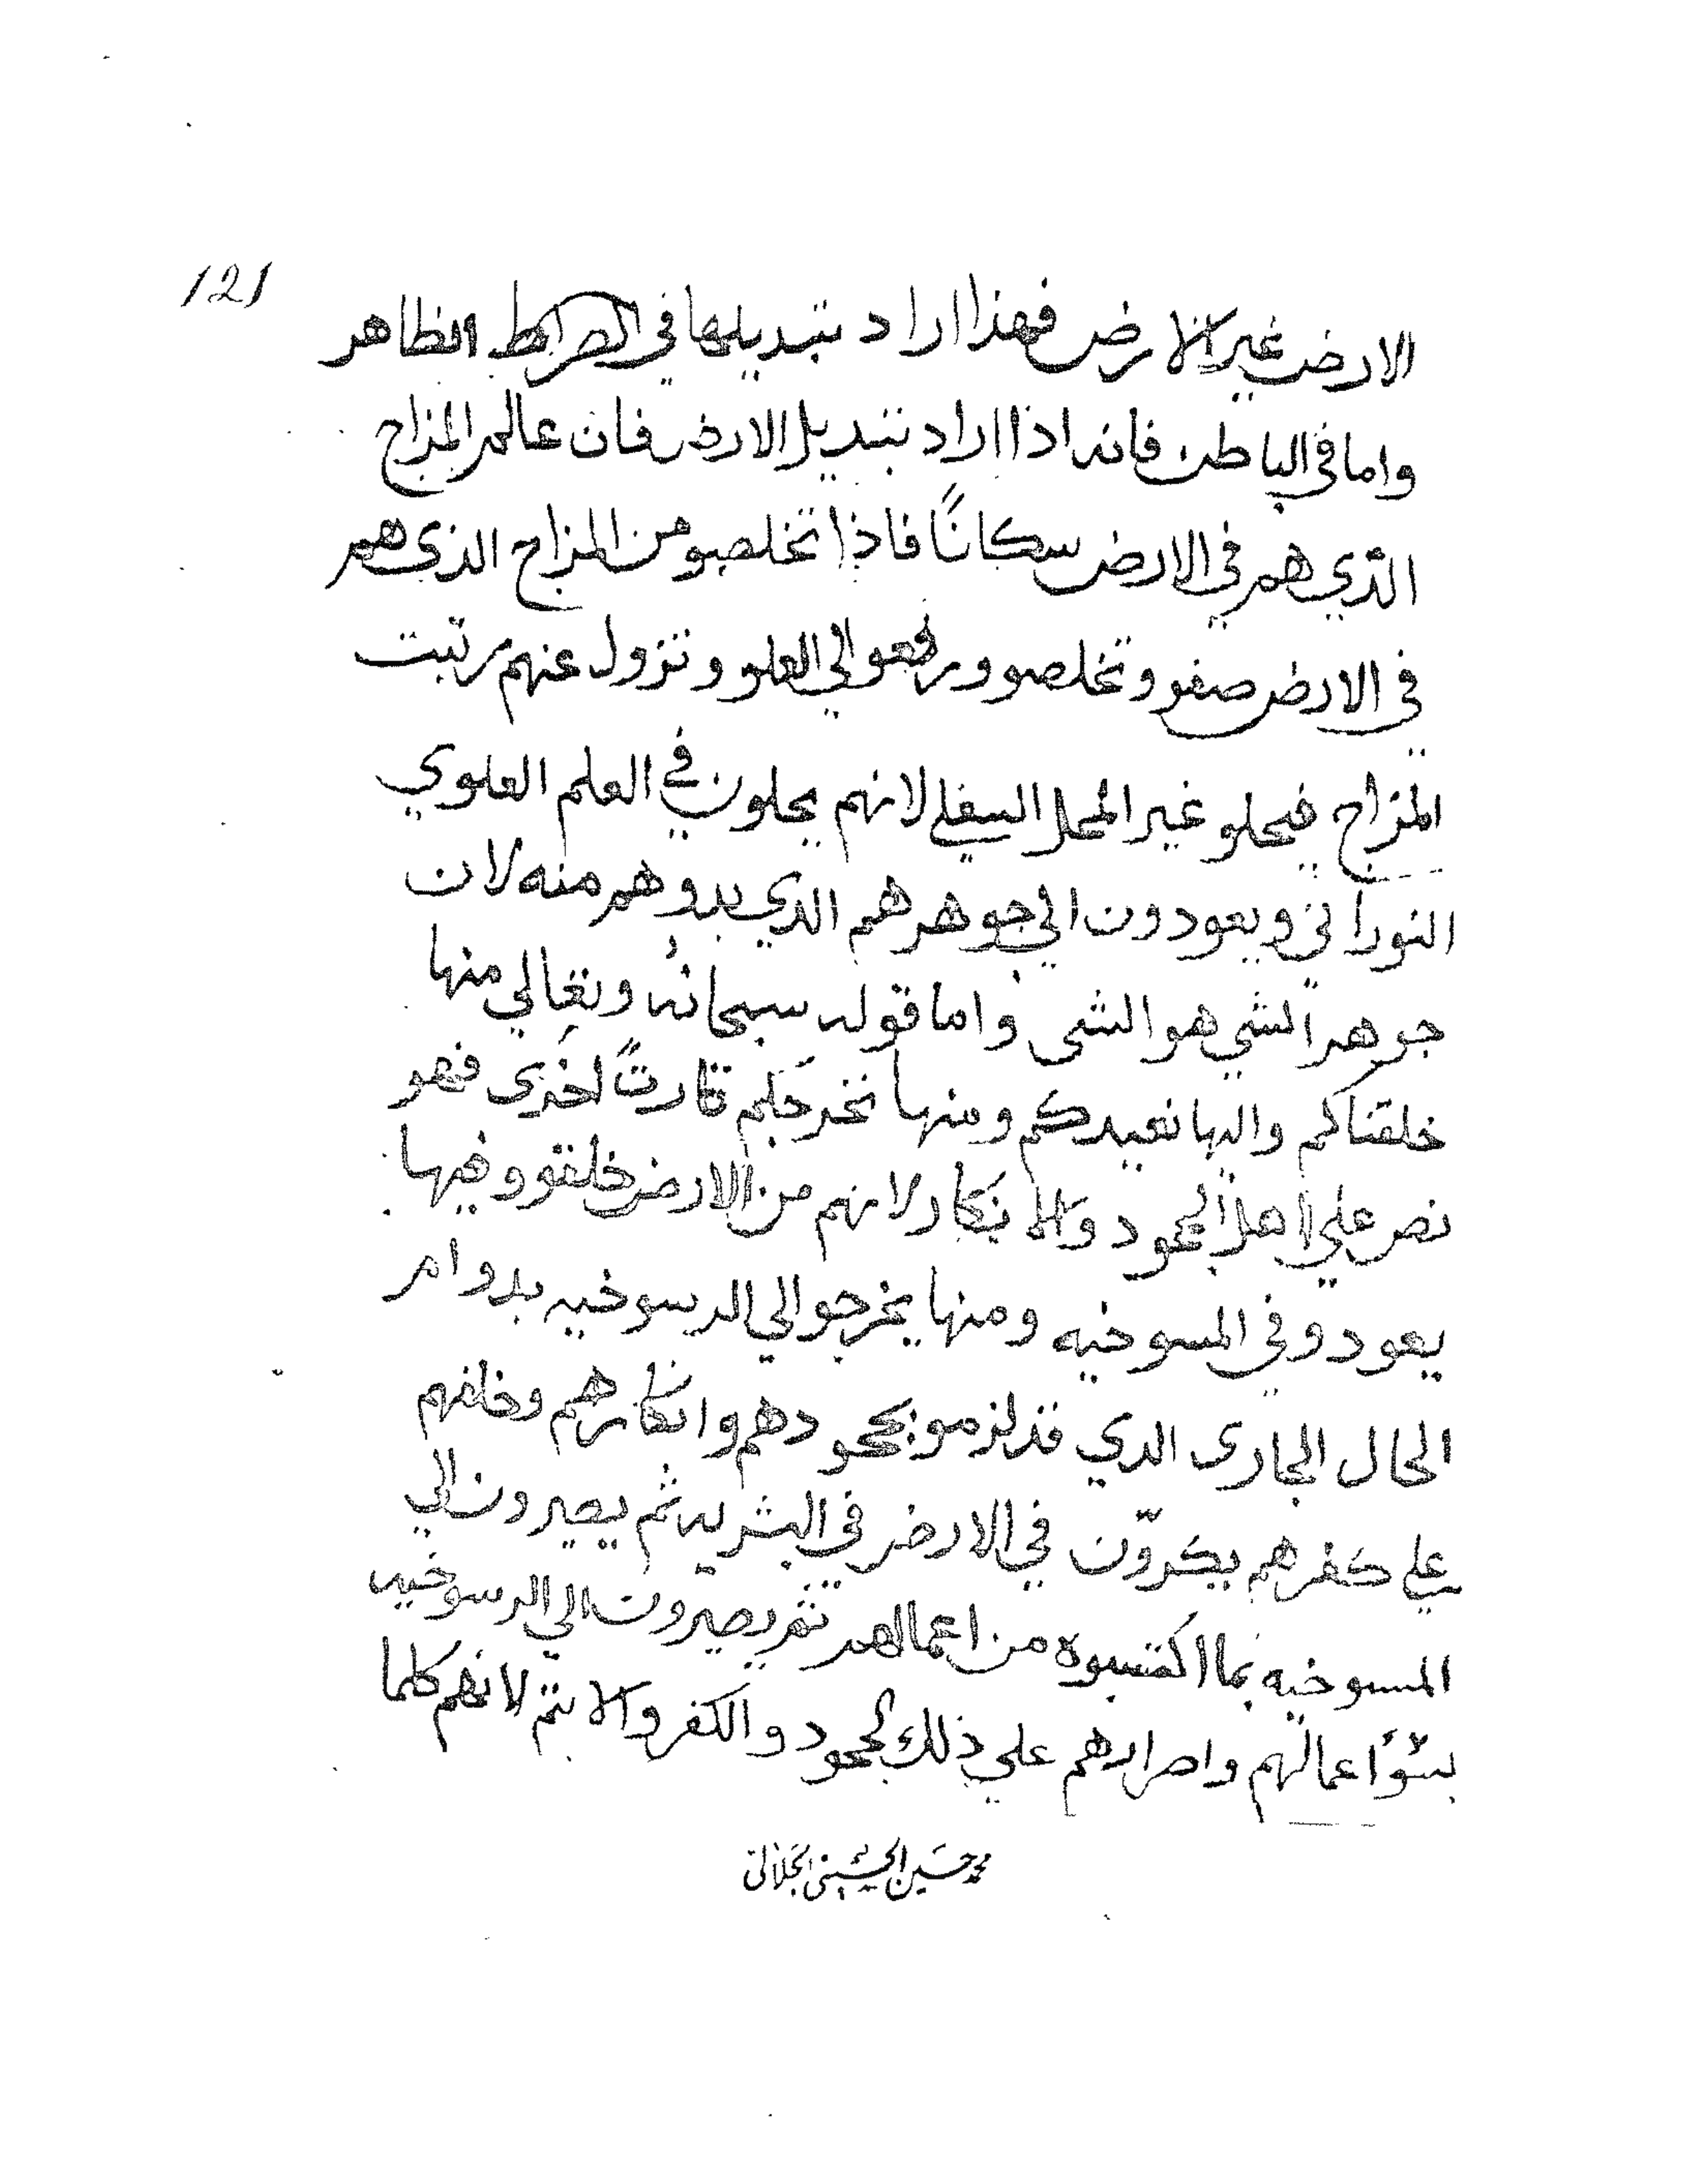 121
الارض غير الارض فهذا اراد بتبديلها في الصراط الظاهر
واما في الباطن فانه اذا اراد بتبديل الارض فان عالم المزاج
الذي هم في الارض سكاناً فاذا تخلصو من المزاج الذي هم
في الارض صفو وتخلصو ورفعو الي العلو وتزول عنهم رتبت
المزاج فيحلو غير المحل السفلي لانهم يحلون في العلم العلوي
النوراني ويعودون الي جوهرهم الذي بدوهم منه لان
جوهر الشي هو الشي واما قوله سبحانه وتعالي منها
خلقناكم واليها نعيدكم ومنها نخرجكم تارتً اخرى فهو
نص علي اهل الجحود والانكار لانهم من الارض خلقو وفيها
يعودو في المسوخيه ومنها يخرجو الي الرسوخيه بدوام
الحال الجارى الدي قد لزمو بجحودهم وانكارهم وخلفهم
علي كفرهم يكرّون في الارض في البشريه ثم يصيرون الي
المسوخيه بما اكتسبوه من اعمالهم ثم يصيرون الي الرسوخيه
بسؤ اعمالهم واصرارهم علي ذلك الجحود والكفر والا بتم لانهم كلما
محمد حسين الحسيني الجلالي